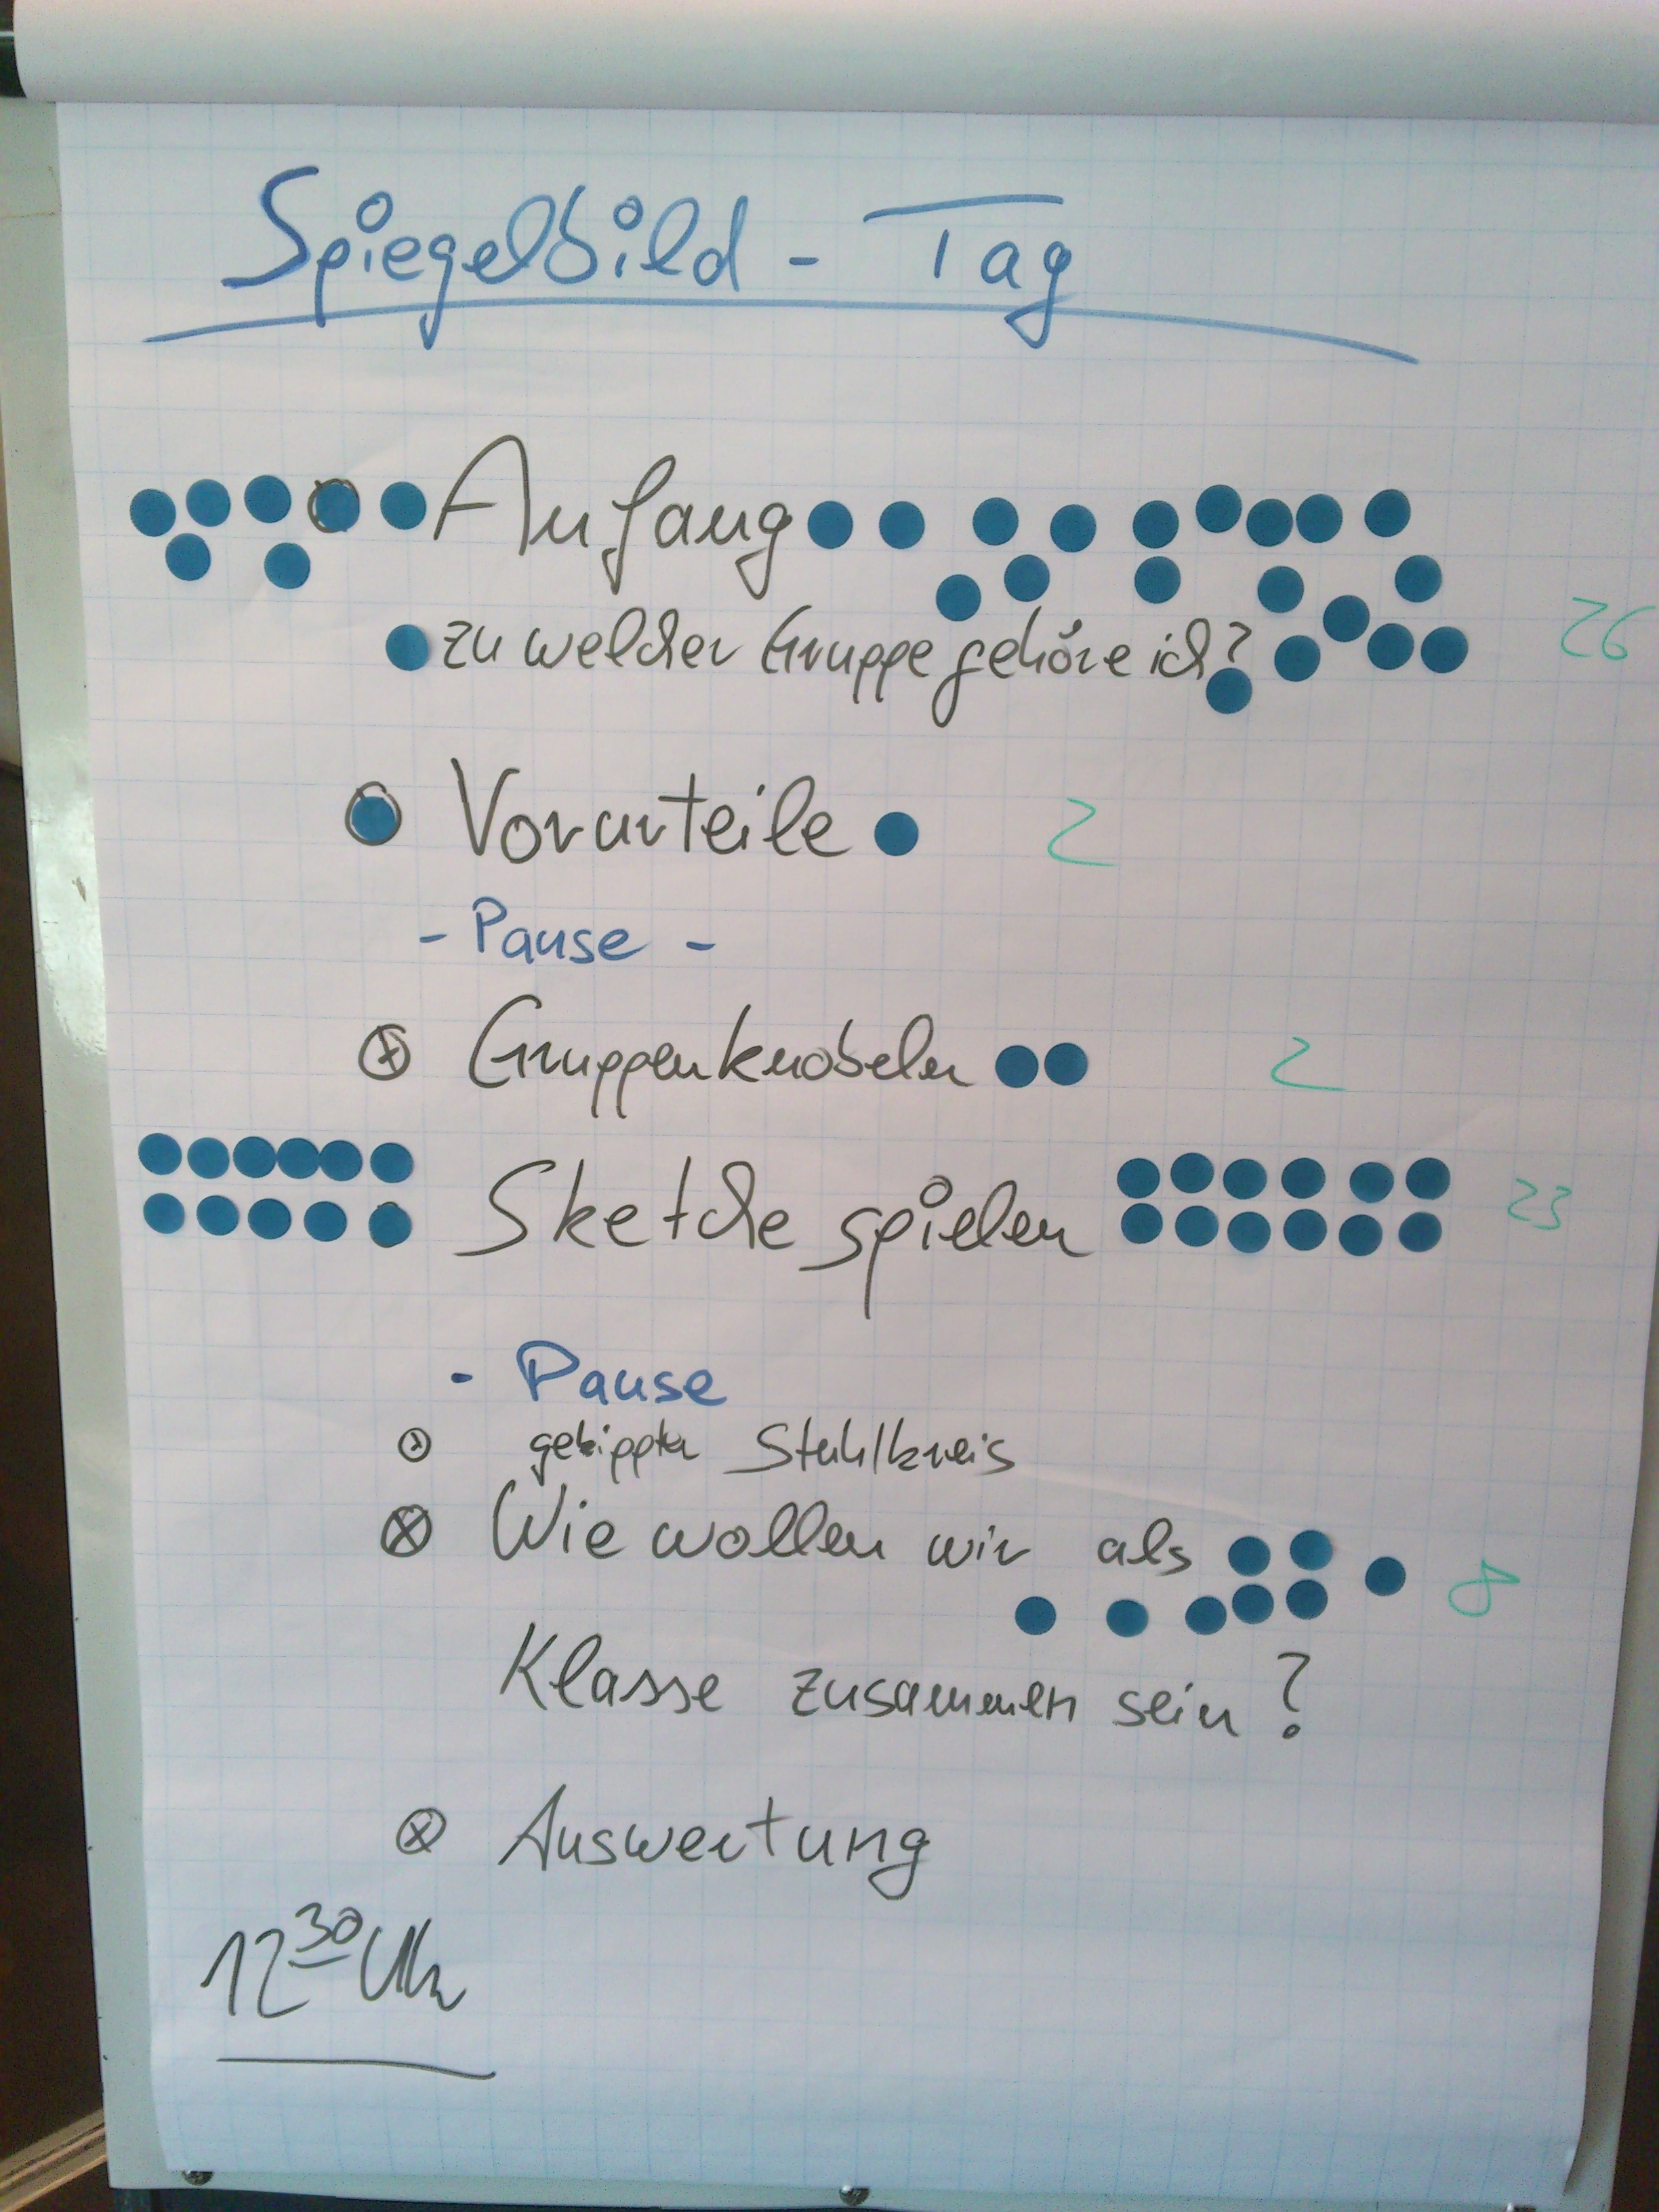 Spiegelbild - Tag
Anfang
zu welcher Gruppe gehöre ich?
26
Vorurteile
2
- Pause -
Gruppenknobeln
2
Sketche spielen
23
- Pause
gekippter Stuhlkreis
Wie wollen wir als
8
Klasse zusammen sein?
Auswertung
12 30 Uhr